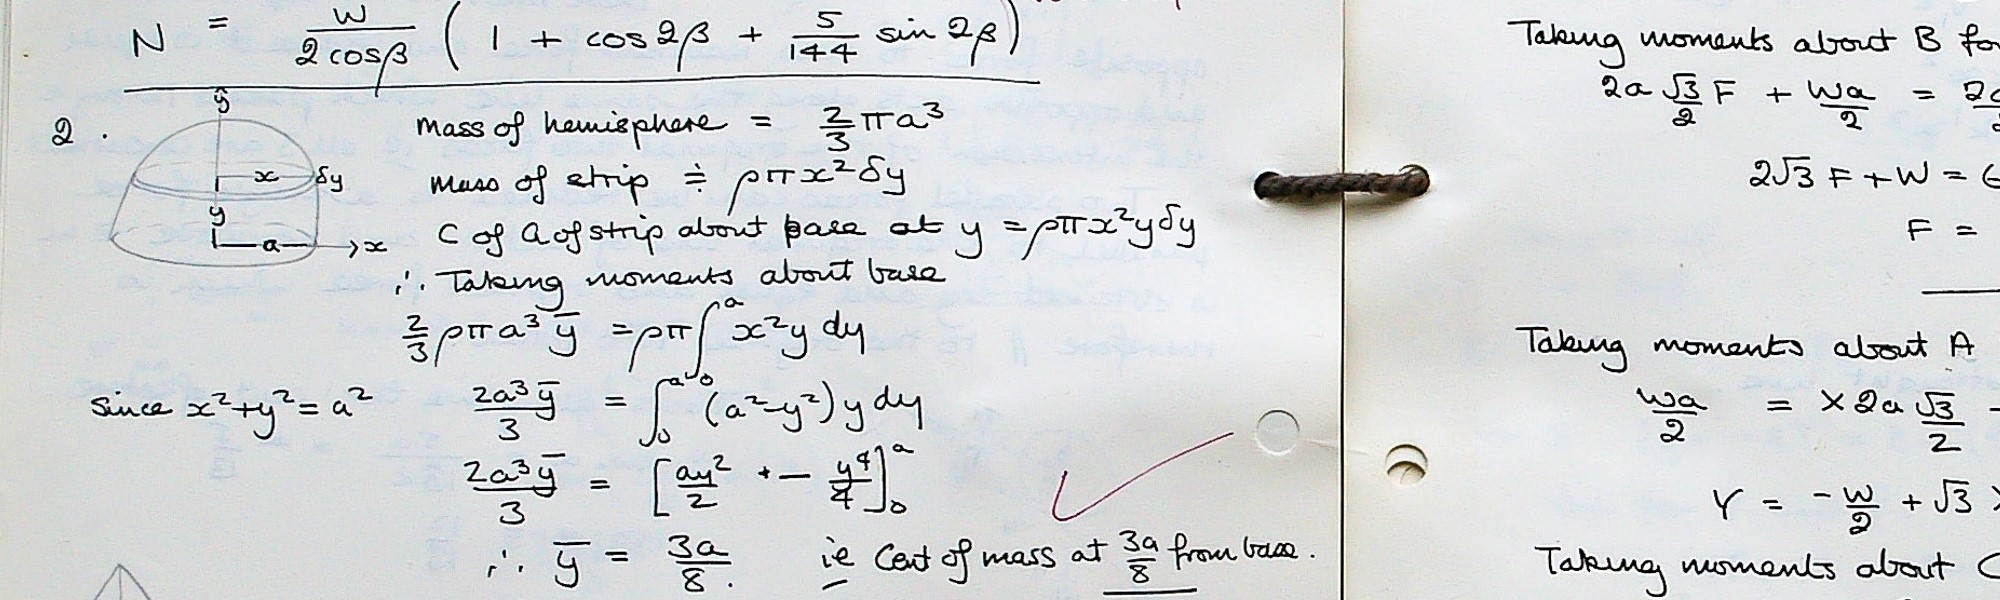 N = W/(2cosβ) (1 + cos2β + 5/144 sin2β)
2.
y
x δy
y
a → x
Mass of hemisphere = 2/3 πa³
Mass of strip ≑ ρπx²δy
C of G of strip about base at y = ρπx²yδy
∴ Taking moments about base
2/3 ρπa³ȳ = ρπ∫₀ᵃ x²y dy
Since x²+y²=a² 2a³ȳ/3 = ∫₀ᵃ (a²-y²)y dy
2a³ȳ/3 = [ay²/2 + - y⁴/4]₀ᵃ
∴ ȳ = 3a/8. ie Cent of mass at 3a/8 from base.
Taking moments about B
2a √3/2 F + Wa/2 =
2√3 F + W =
F =
Taking moments about A
Wa/2 = X 2a √3/2 -
Y = -W/2 + √3
Taking moments about C